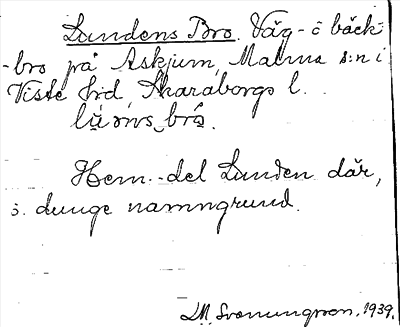 Lundens Bro. Väg- o bäck-
-bro på Askjum, Malma s:n i
Viste hd, Skaraborgs l.
Hem.-del Lunden där,
o. dunge namngrund.
LM. Svenungsson. 1939.